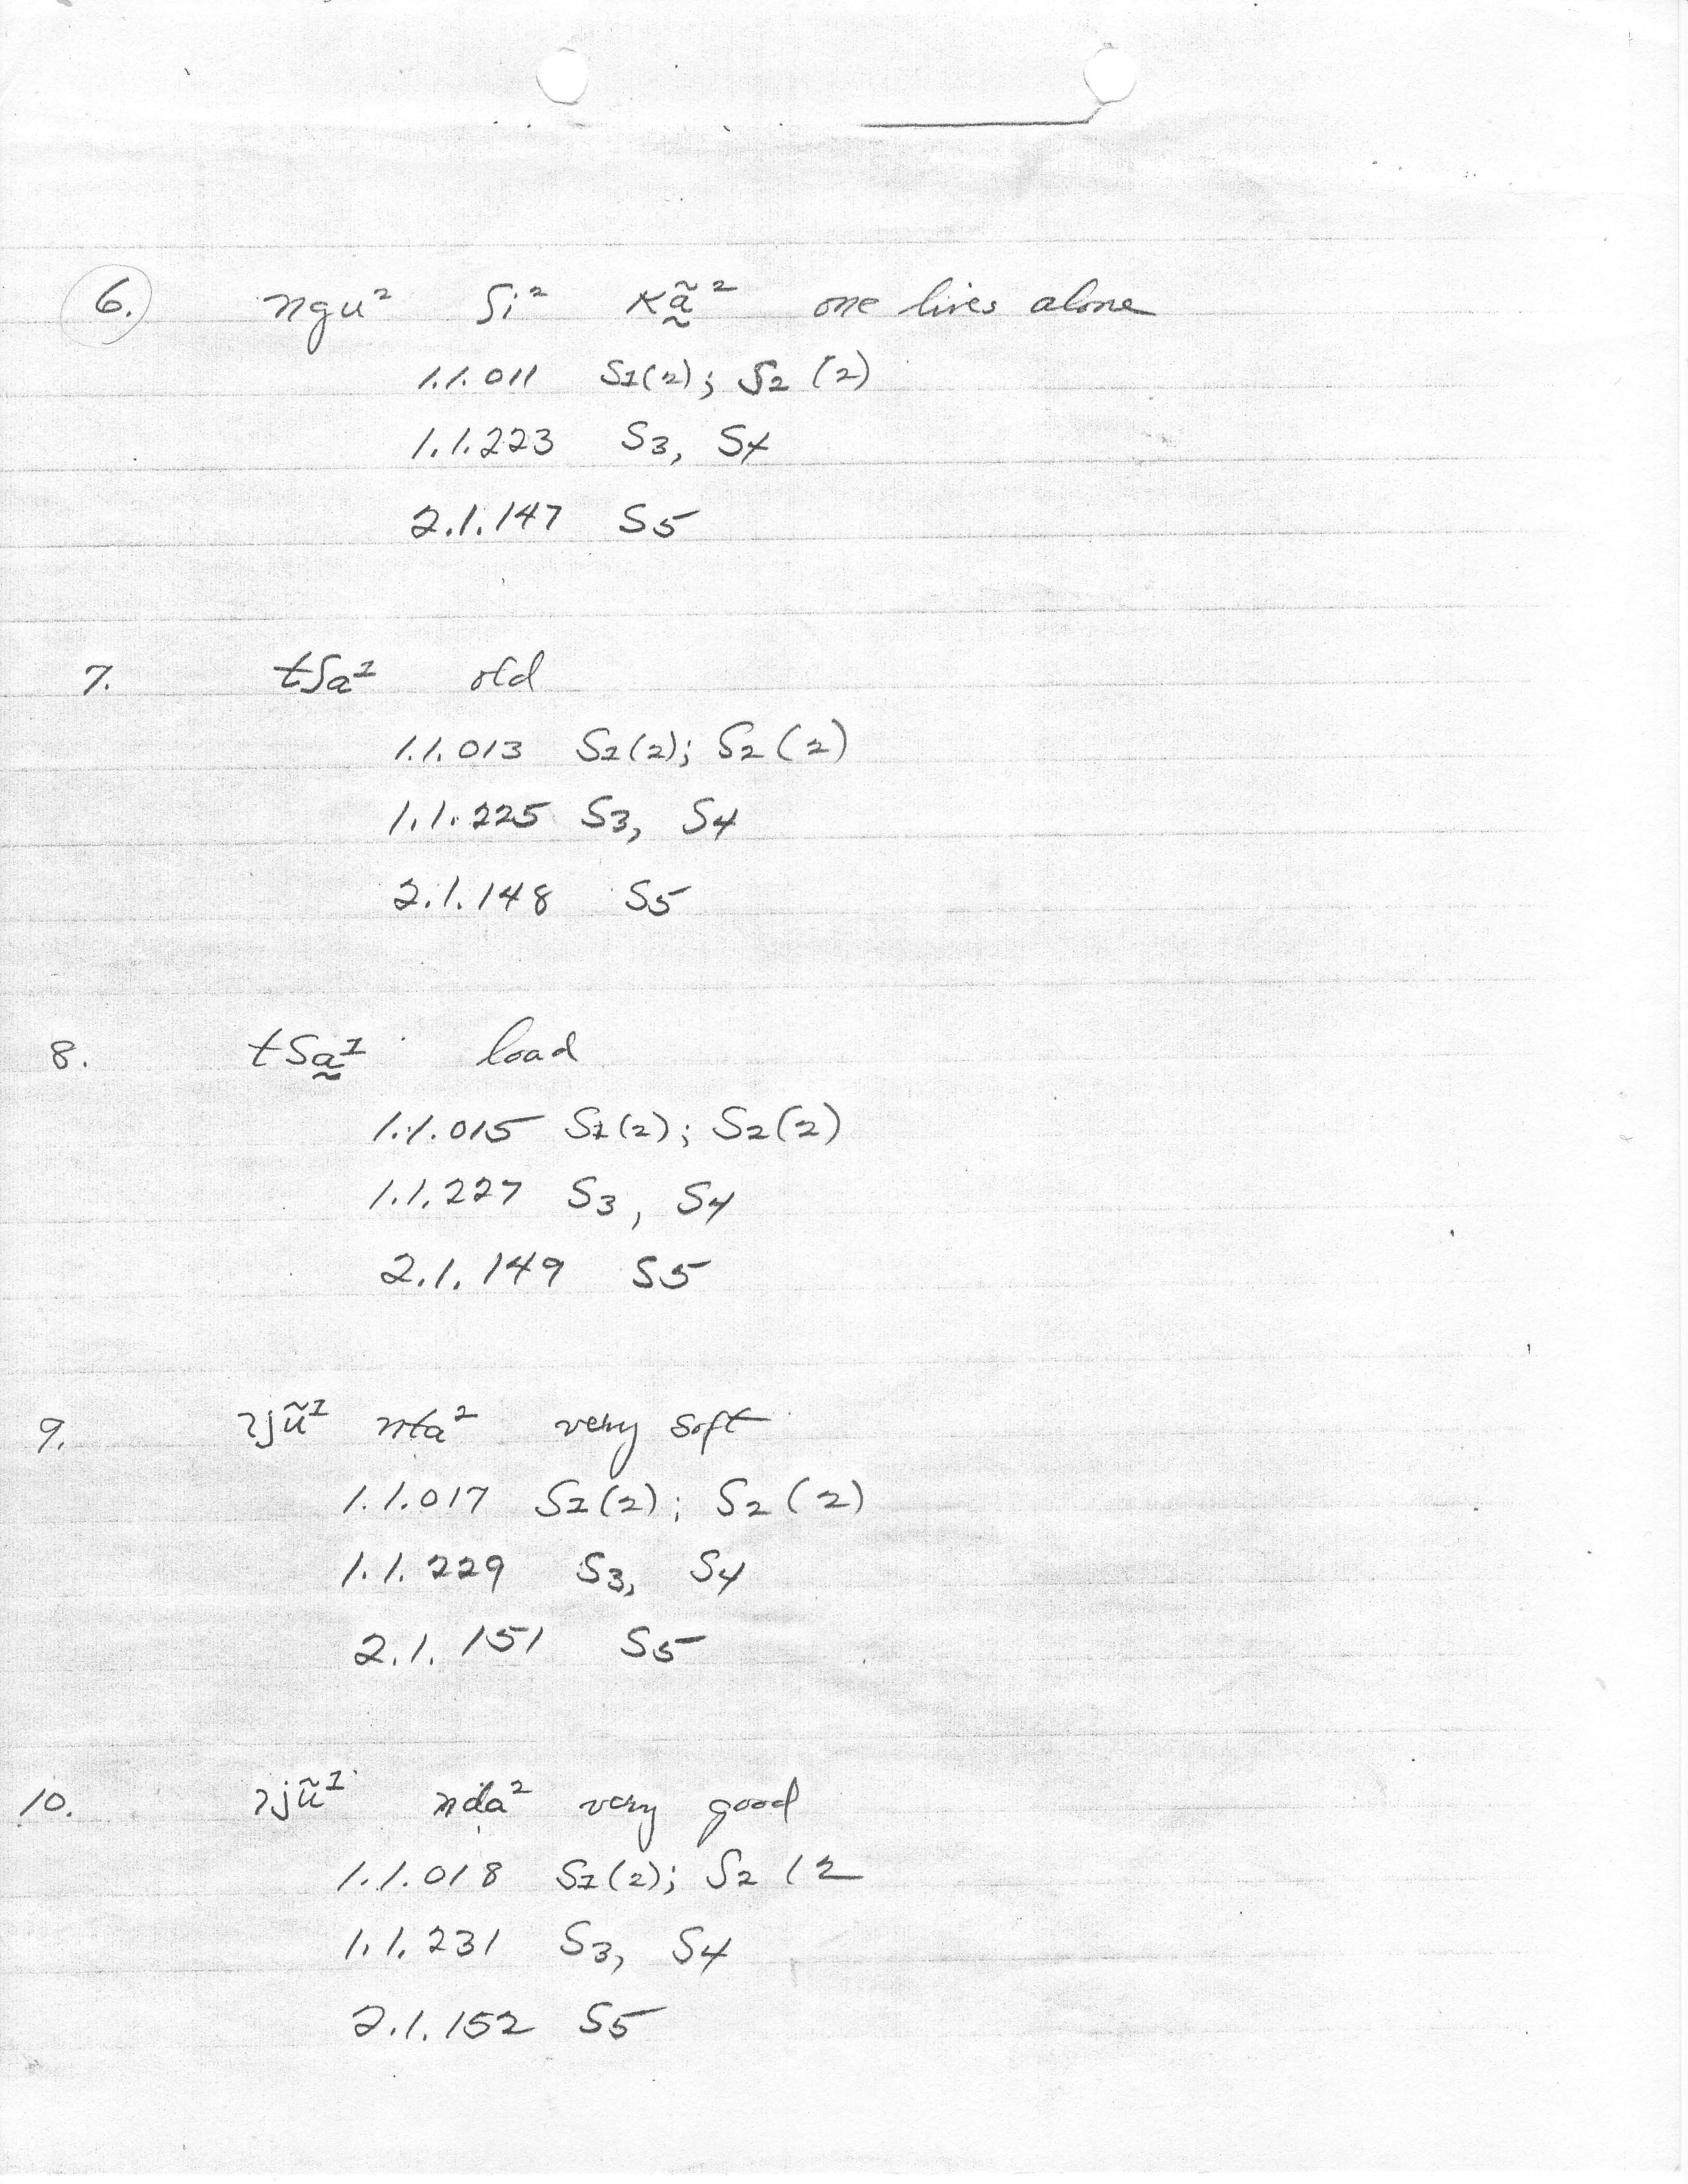 6. ngu² ʃi² kã̰² one lives alone
1.1.011 S1(2); S2 (2)
1.1.223 S3, S4
2.1.147 S5
7. tʃa¹ old
1.1.013 S1(2); S2 (2)
1.1.225 S3, S4
2.1.148 S5
8. tʃa̰¹ load
1.1.015 S1(2); S2(2)
1.1.227 S3, S4
2.1.149 S5
9. ʔjũ¹ nta² very soft
1.1.017 S1(2); S2 (2)
1.1.229 S3, S4
2.1.151 S5
10. ʔjũ¹ nda² very good
1.1.018 S1(2); S2 (2
1.1.231 S3, S4
2.1.152 S5